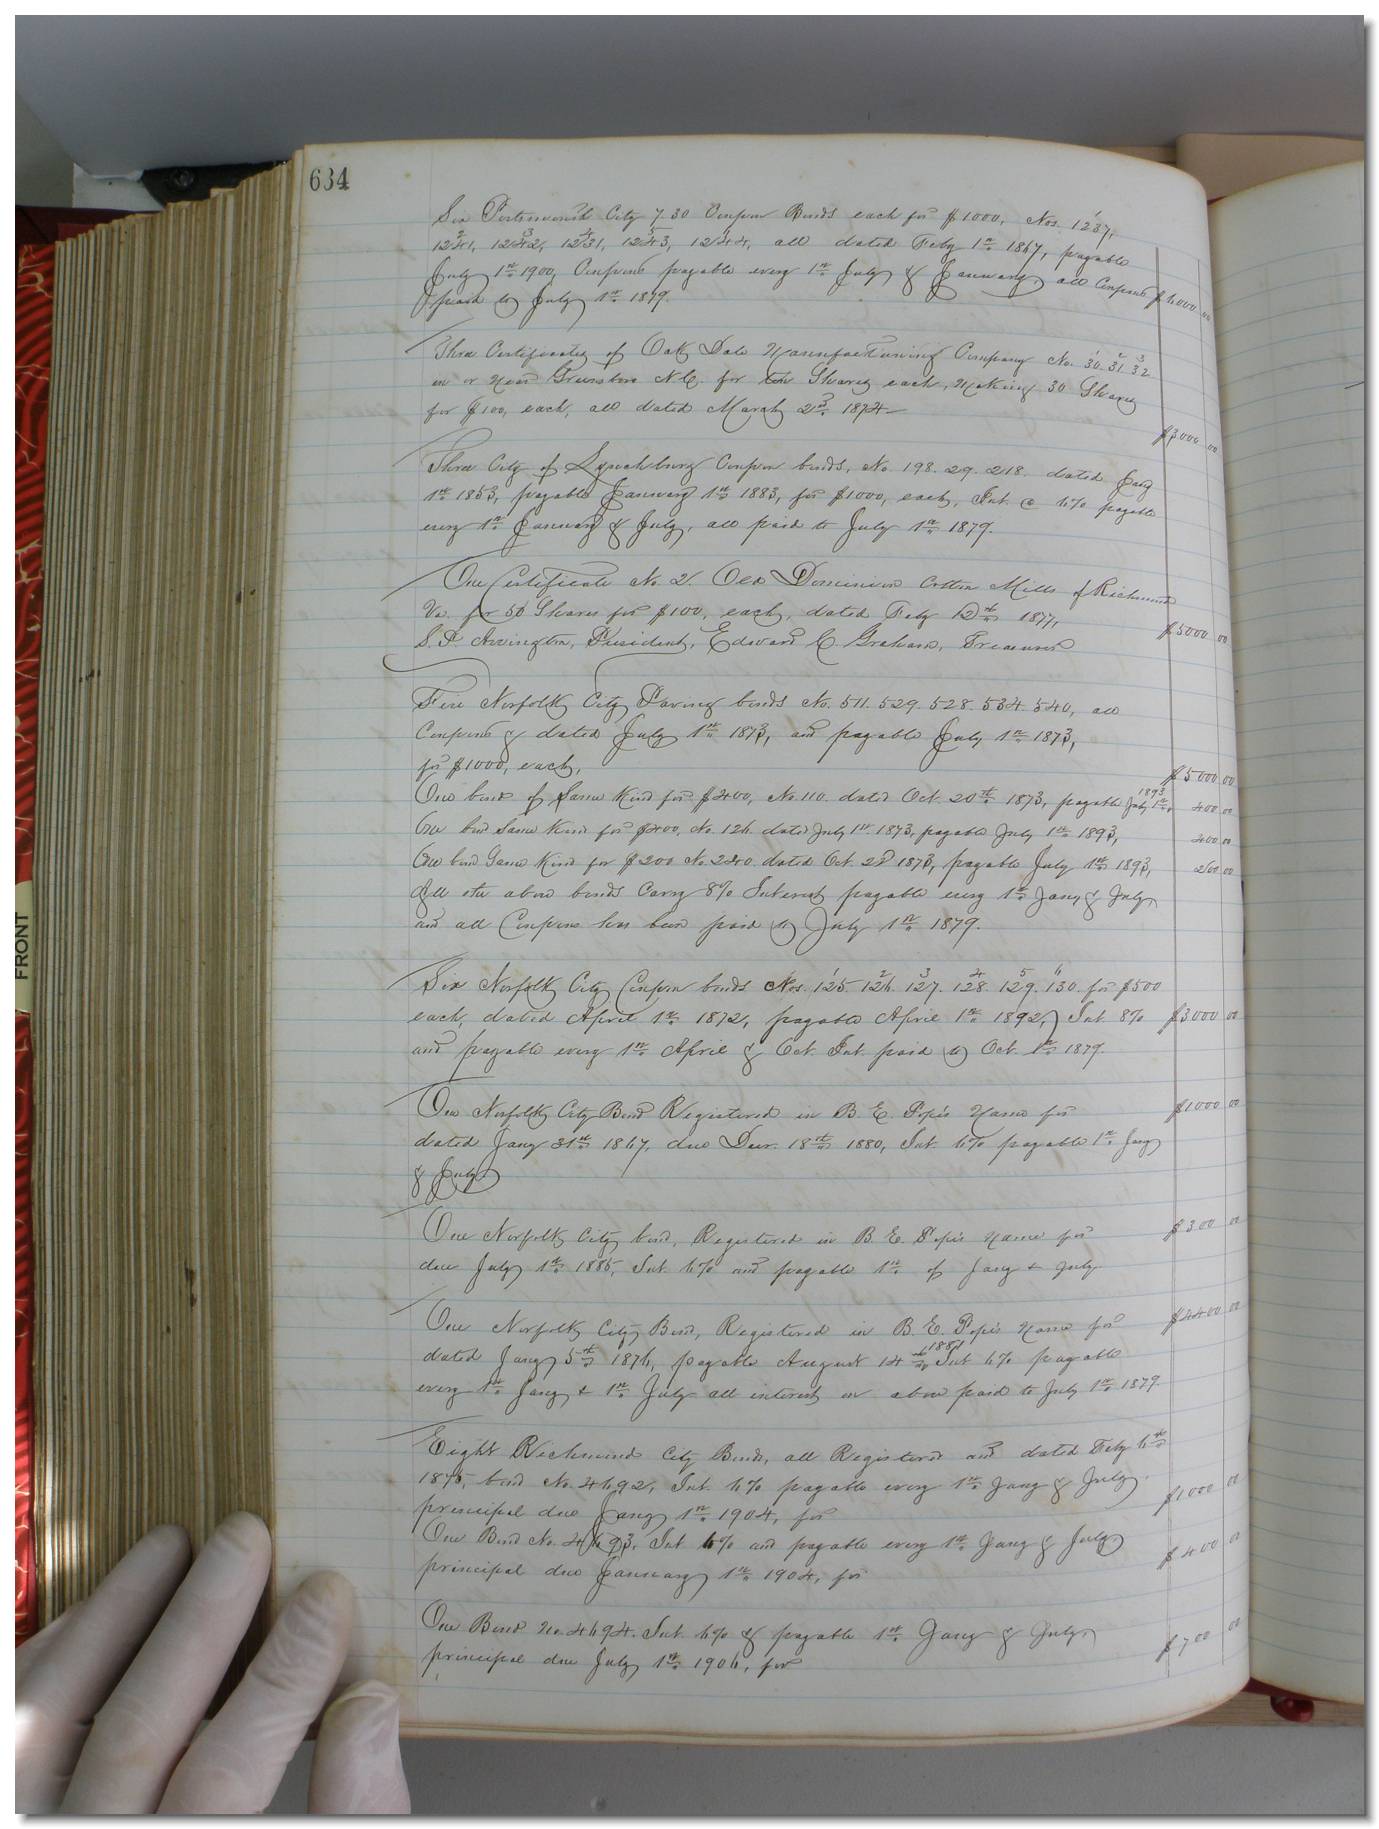 634
Six Portsmouth City 7.30 Coupon Bonds each for $1000, Nos. 1237,
1241, 1242, 1231, 1243, 1244, all dated Feby 1st 1867, payable
July 1st 1900, Coupons payable every 1st July & January, all Coupons $6000 00
paid to July 1st 1879.
Three Certificates of Oak Dale Manufacturing Company No. 30. 31. 32
in or Near Greensboro N.C. for ten Shares each, Making 30 Shares
for $100, each, all dated March 23 1874
$3000 00
Three City of Lynchburg Coupon bonds, No. 198. 29. 218. dated Jany
1st 1853, payable January 1st 1883, for $1000, each, Int. @ 6% payable
every 1st January & July, all paid to July 1st 1879.
One Certificate No. 2. Old Dominion Cotton Mills of Richmond
Va. for 50 Shares for $100, each, dated Feby 12th 1877, $5000 00
Arrington, President, Edward C. Graham, Treasurer
Five Norfolk City Paving bonds No. 511. 529. 528. 534. 540, all
Coupons & dated July 1st 1873, and payable July 1st 1873,
for $1000, each, $5000 00
One bond of Same Kind for $400, No. 110. dated Oct. 20th 1873, payable July 1st 1893 400 00
One bond Same Kind for $400, No. 126. dated July 1st 1873, payable July 1st 1893, 400 00
One bond Same Kind for $200 No. 240 dated Oct. 28 1873, payable July 1st 1893, 200 00
All the above bonds Carry 8% Interest payable every 1st Jany & July
and all Coupons has been paid to July 1st 1879.
Six Norfolk City Coupon bonds Nos. 125. 126. 127. 128. 129. 130. for $500
each, dated April 1st 1872, payable April 1st 1892, Int 8% $3000 00
and payable every 1st April & Oct. Int. paid to Oct. 1st 1879.
One Norfolk City Bond Registered in B. E. Pope's Name for $1000 00
dated Jany 31st 1867, due Decr. 18th 1880, Int. 6% payable 1st Jany
& July
One Norfolk City bond, Registered in B. E. Pope's Name for $300 00
due July 1st 1885, Int. 6% and payable 1st of Jany & July
One Norfolk City Bond, Registered in B. E. Pope's Name for $4400 00
dated Jany 5th 1876, payable August 14th 1881 Int 6% payable
every 1st Jany & 1st July all interest on above paid to July 1st 1879.
Eight Richmond City Bonds, all Registered and dated Feby 6th
1875, bond No. 4692, Int. 6% payable every 1st Jany & July
principal due Jany 1st 1904, for $1000 00
One Bond No. 4693, Int 6% and payable every 1st Jany & July
principal due January 1st 1904, for $400 00
One Bond No. 4694. Int. 6% & payable 1st Jany & July,
principal due July 1st 1906, for $700 00
FRONT